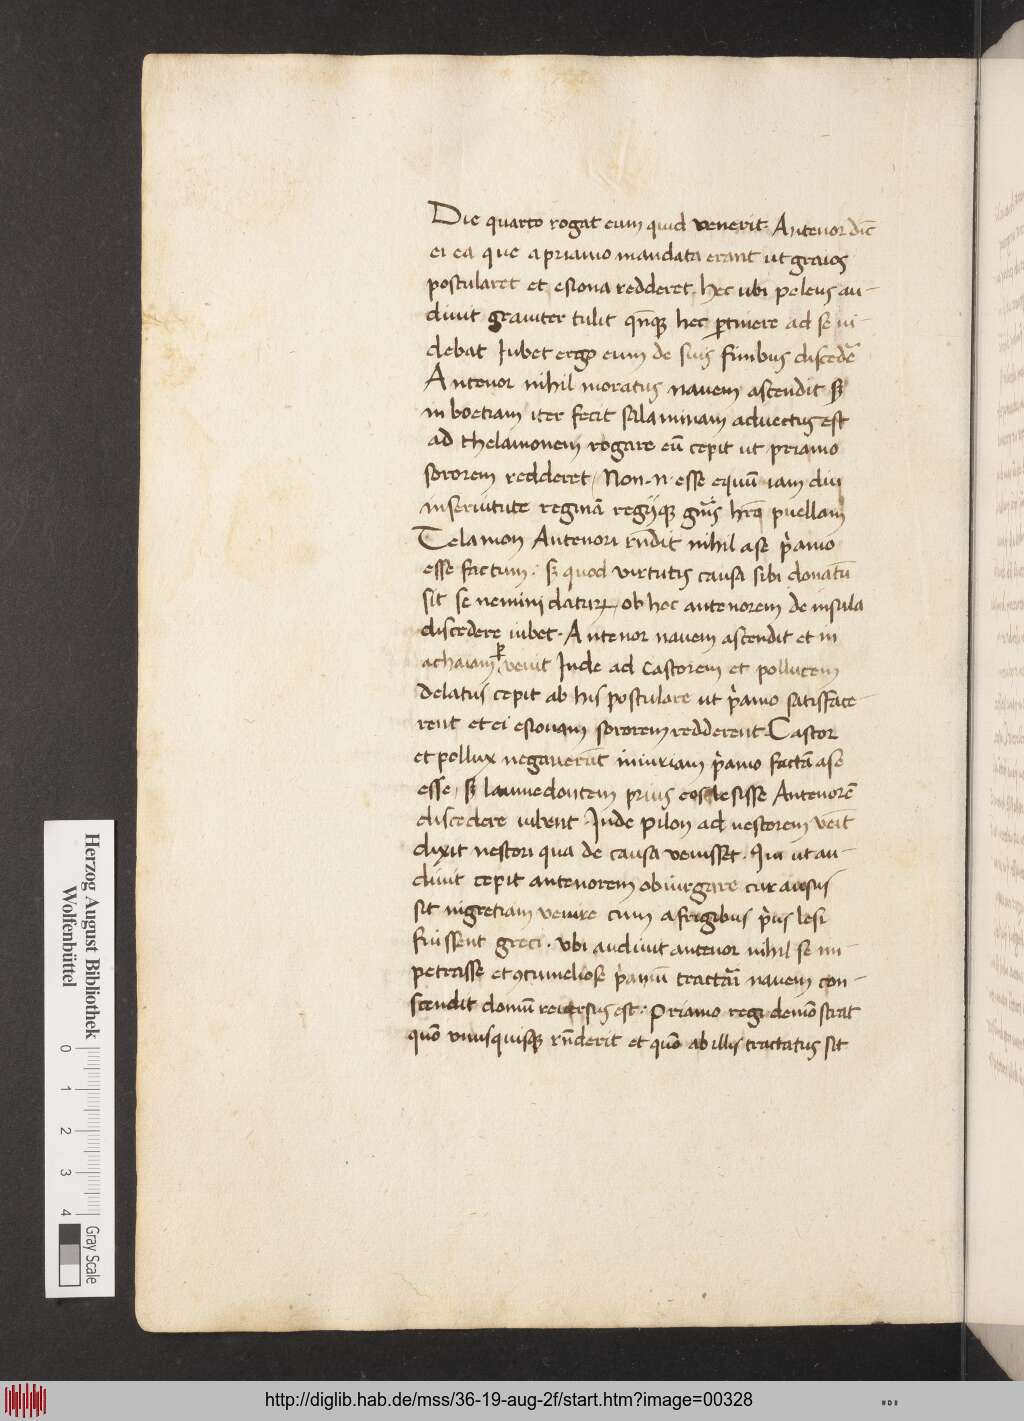 Die quarto rogat eum quid venerit. Antenor dic̄
ei ea que a priamo mandata erant ut graios
postularet et esiona redderet. hec ubi peleus au-
diuit grauiter tulit qn̄qꝫ hec ꝑtinere ad se ui
debat Iubet ergo eum de suis finibus discedē
Antenor nihil moratus nauem ascendit sꝫ
in boetiam iter fecit salaminam aduectus est
ad thelamonem rogare eū cepit ut priamo
sororem redderet / Non .n. esse equū iam diu
in seruitute reginā regijqꝫ gn̄is hr̄e puellam
Telamon Antenori rn̄dit nihil a se p̍amo
esse factum. sꝫ quod virtutis causa sibi donatū
sit se nemini daturꝝ, ob hec antenorem de insula
discedere iubet. Antenor nauem ascendit et in
achaiam ꝑuenit Inde ad Castorem et pollucem
delatus cepit ab his postulare ut p̍amo satisface-
rent et ei esionam sororem redderent. Castor
et pollux negauerūt iniuriam p̍amo factā a se
esse, sꝫ laumedontem prius eos lesisse Antenorē
discedere iubent. Inde pilon ad nestorem veīt
dixit nestori qua de causa venisset. Qui ut au-
diuit cepit antenorem obiurgare cur ausus
sit in gretiam venire cum a frigibus p̍us lesi
fuissent greci. Vbi audiuit antenor nihil se im
petrasse et ꝯtumeliose p̍amū tractārī nauem con-
scendit domū reuersus est. Priamo regi demōstrat
quō vnusquisqꝫ rn̄derit et quō ab illis tractatus sit
Herzog August Bibliothek
Wolfenbüttel
0 1 2 3 4
Gray Scale
http://diglib.hab.de/mss/36-19-aug-2f/start.htm?image=00328